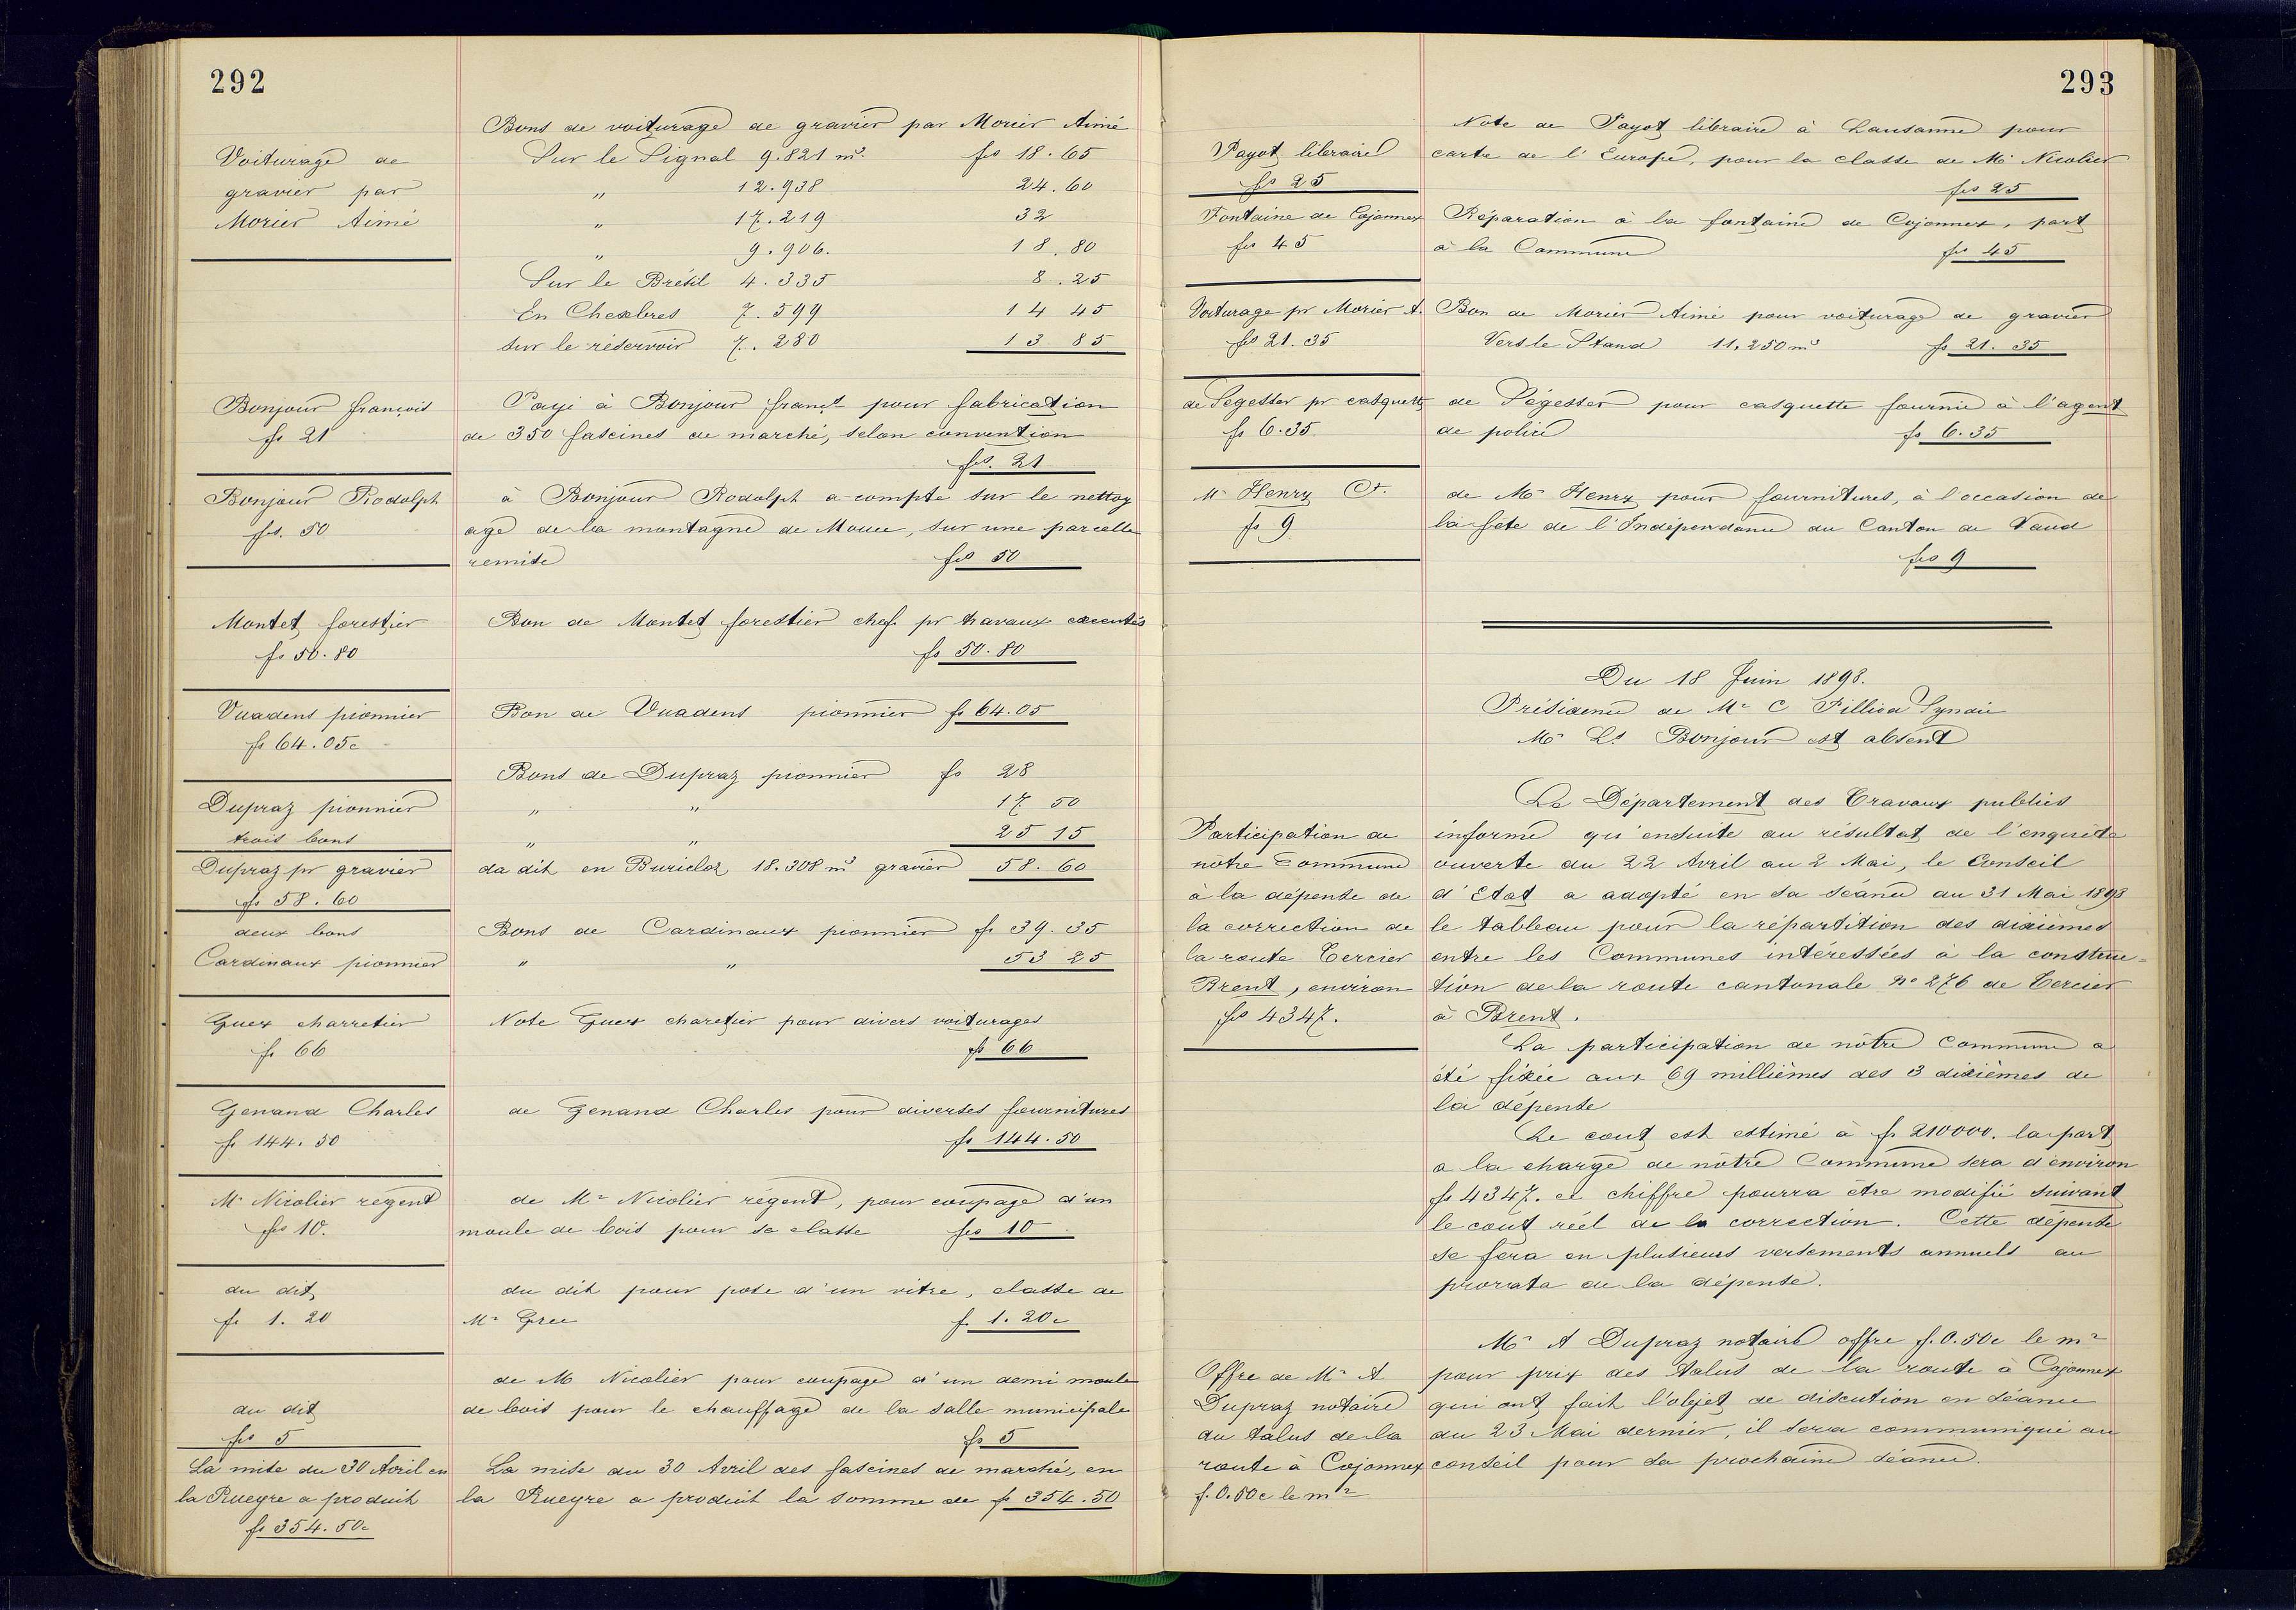 292
Bons de voiturage de gravier par Morier Aimé
Voiturage de
gravier par
Morier Aimé
Sur le Signal 9.821 m³. frs 18.65
" 12.938 24.60
" 17.219 32
" 9.906. 18.80
Sur le Brésil 4.335 8.25
En Chexbres 7.599 14 45
sur le réservoir 7.280 13 85
Bonjour françois
fr 21
Payé à Bonjour françs pour fabrication
de 350 fascines de marché, selon convention
frs. 21
Bonjour Rodolph
frs. 50
à Bonjour Rodolph a-compte sur le nettoy
age de la montagne de , sur une parcelle
remise frs 50
Montet forestier
fr 50.80
Bon de Montet forestier chef. pr travaux executés
fr 50.80
Vuadens pionnier
fr 64.05c
Bon de Vuadens pionnier fr 64.05
Dupraz pionnier
trois bons
Bons de Dupraz pionnier fr 28
" " 17 50
" " 25 15
Dupraz pr gravier
fr 58.60
du dit en Burieloz 18.308 m³ gravier 58.60
deux bons
Cardinaux pionnier
Bons de Cardinaux pionnier fr 39.35
" " 53 25
Guex charretier
fr 66
Note Guex charetier pour divers voiturages
fr 66
Genand Charles
fr 144.50
de Genand Charles pour diverses fournitures
fr 144.50
Mr Nicolier régent
frs 10.
de Mr Nicolier régent, pour coupage d'un
moule de bois pour sa classe frs 10
du dit
fr 1.20
du dit pour pose d'un vitre, classe de
Mr f. 1.20c
du dit
frs 5
de M Nicolier pour coupage d'un demi moule
de bois pour le chauffage de la salle municipale
fr 5
La mise du 30 Avril en
la Rueyre a produit
fr 354.50c
La mise du 30 Avril des fascines de marché, en
la Rueyre a produit la somme de fr 354.50
293
Payot libraire
frs 25
Note de Payot libraire à Lausanne pour
carte de l'Europe, pour la classe de Mr Nicolier
frs 25
Fontaine de Cojonnex
frs 45
Réparation à la fontaine de Cojonnex, part
à la Commune frs 45
Voiturage pr Morier A.
frs 21.35
Bon de Morier Aimé pour voiturage de gravier
Vers le Stand 11,250 m³ fr 21.35
de Pégesser pr casquette
fr 6.35
de Pégesser pour casquette fournie à l'agent
de police fr 6.35
Mr Henry Ct.
fr 9
de Mr Henry pour fournitures, à l'occasion de
la fête de l'Indépendance du Canton de Vaud
frs 9
Du 18 Juin 1898.
Présidence de Mr C Pilliod Syndic
Mr Ls Bonjour est absent
Participation de
notre Commune
à la dépense de
la correction de
la route Tercier
Brent, environ
frs 4347.
Le Département des Travaux publics
informe qu'ensuite du résultat de l'enquête
ouverte du 22 Avril au 2 Mai, le Conseil
d'Etat a adopté en sa séance du 31 Mai 1898
le tableau pour la répartition des dixièmes
entre les Communes intéressées à la construc=
tion de la route cantonale No 276 de Tercier
à Brent.
La participation de nôtre Commune a
été fixée aux 69 millièmes des 3 dixièmes de
la dépense
Le cout est estimé à fr 210000. la part
a la charge de nôtre Commune sera d'environ
fr 4347. ce chiffre pourra être modifié suivant
le cout réel de la correction. Cette dépense
se fera en plusieurs versements annuels au
prorata de la dépense.
Offre de Mr A
Dupraz notaire
du talus de la
route à Cojonnex
f. 0.50c le m²
Mr A Dupraz notaire offre f. 0.50c le m²
pour prix des talus de la route à Cojonnex
qui ont fait l'objet de discution en séance
du 23 Mai dernier, il sera communiqué au
conseil pour sa prochaine séance.